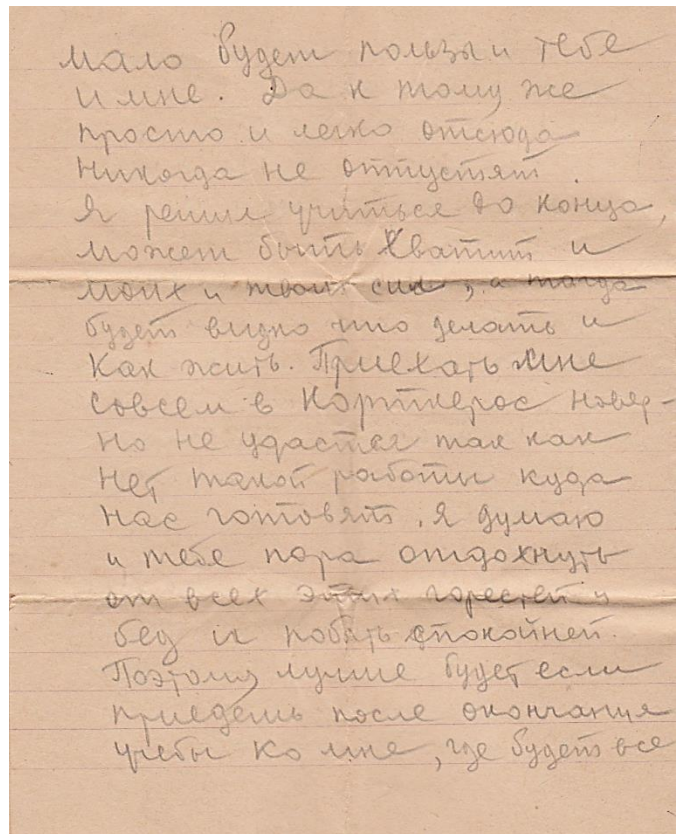 мало будет пользы и тебе
и мне. Да к тому же
просто и легко отсюда
никогда не отпустят.
Я решил учиться до конца,
может быть хватит и
моих и твоих сил, а тогда
будет видно что делать и
как жить. Приехать мне
совсем в Корткерос навер-
но не удастся так как
нет такой работы куда
нас готовят. Я думаю
и тебе пора отдохнуть
от всех этих горестей и
бед и побыть спокойней.
Поэтому лучше будет если
приедешь после окончания
учебы ко мне, где будет все